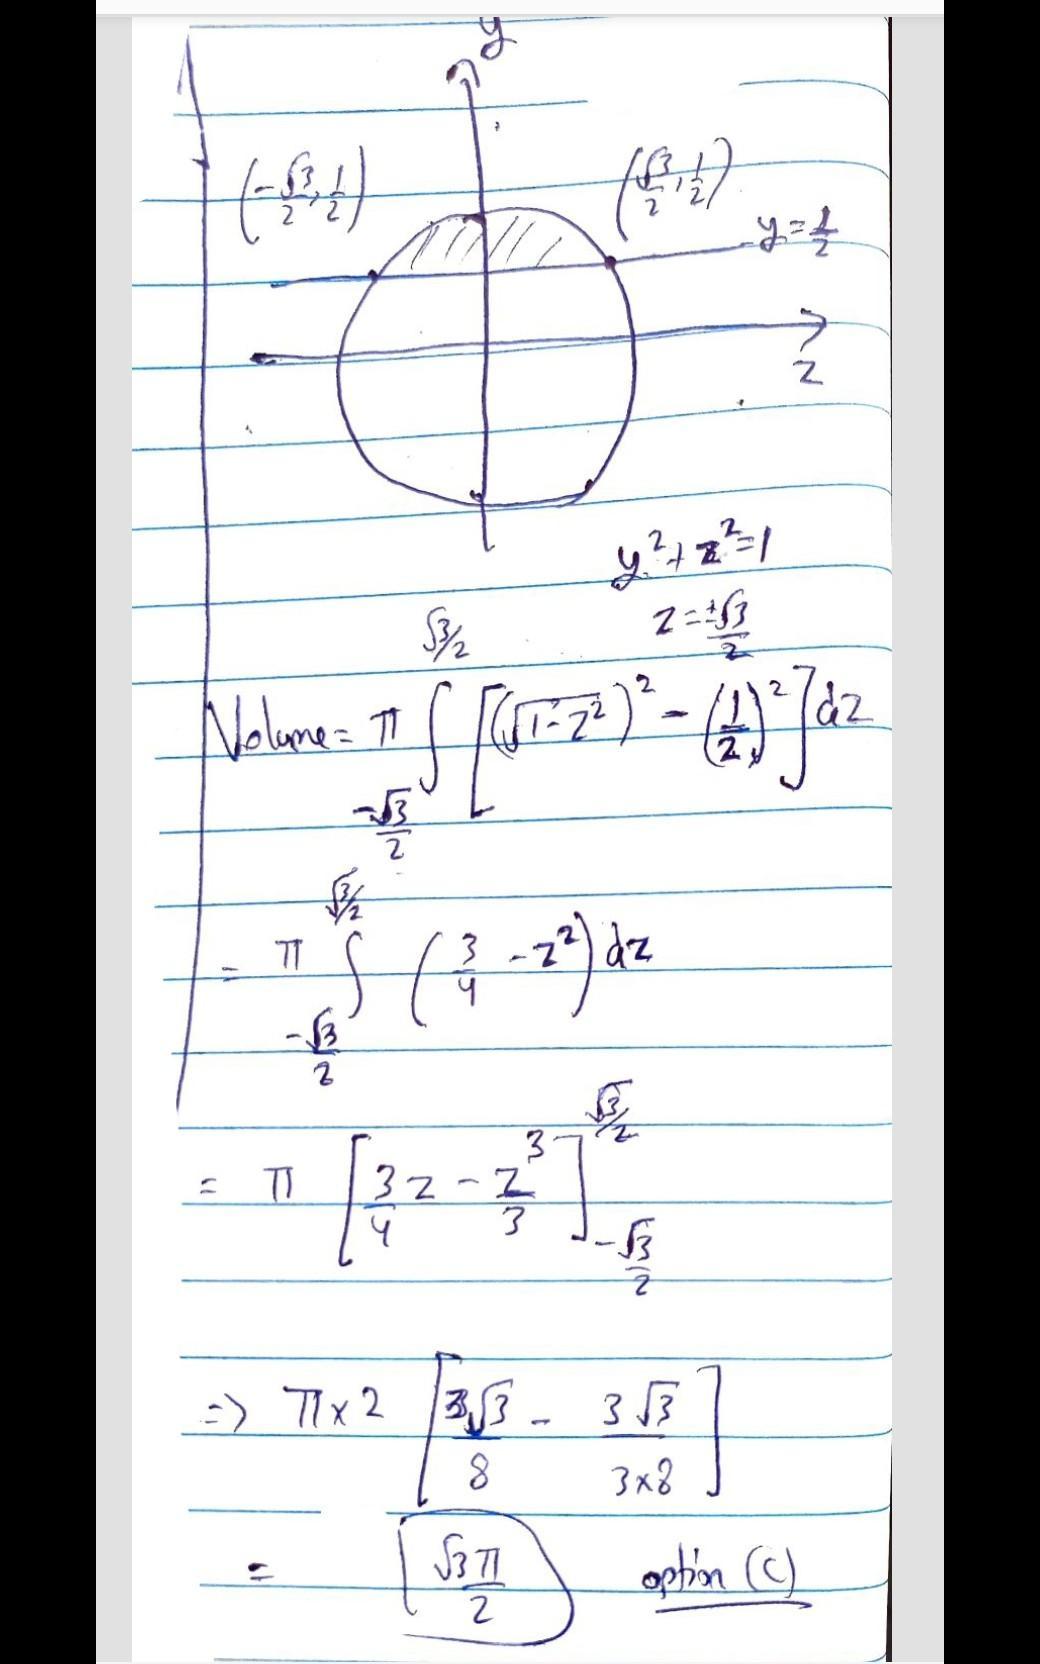 y
(-√3/2, 1/2)
(√3/2, 1/2)
y = 1/2
z
y² + z² = 1
z = ±√3/2
Volume = π ∫_{-√3/2}^{√3/2} [(√(1-z²))² - (1/2)²] dz
= π ∫_{-√3/2}^{√3/2} (3/4 - z²) dz
= π [3/4 z - z³/3]_{-√3/2}^{√3/2}
=> π x 2 [3√3/8 - 3√3/(3x8)]
= √3π/2 option (C)